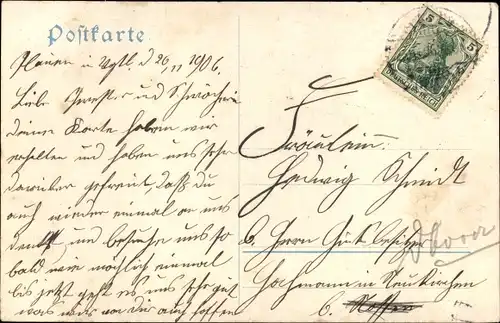 Postkarte
Plauen i. Vgtl. d 26/11 1906.
Liebe Schwester und Schwägerin
deine Karte haben wir
erhalten und haben uns sehr
darüber gefreut, daß du
auch wieder einmal an uns
denkst, und besuche uns so
bald wie möglich einmal
bis jetzt geht es uns sehr gut
was wir von dir auch hoffen
5 5
DEUTSCHES REICH
Fräulein
Hedwig Schmidt
b. Herrn Gutsbesitzer
Hachmann in Neukirchen
b. Nossen